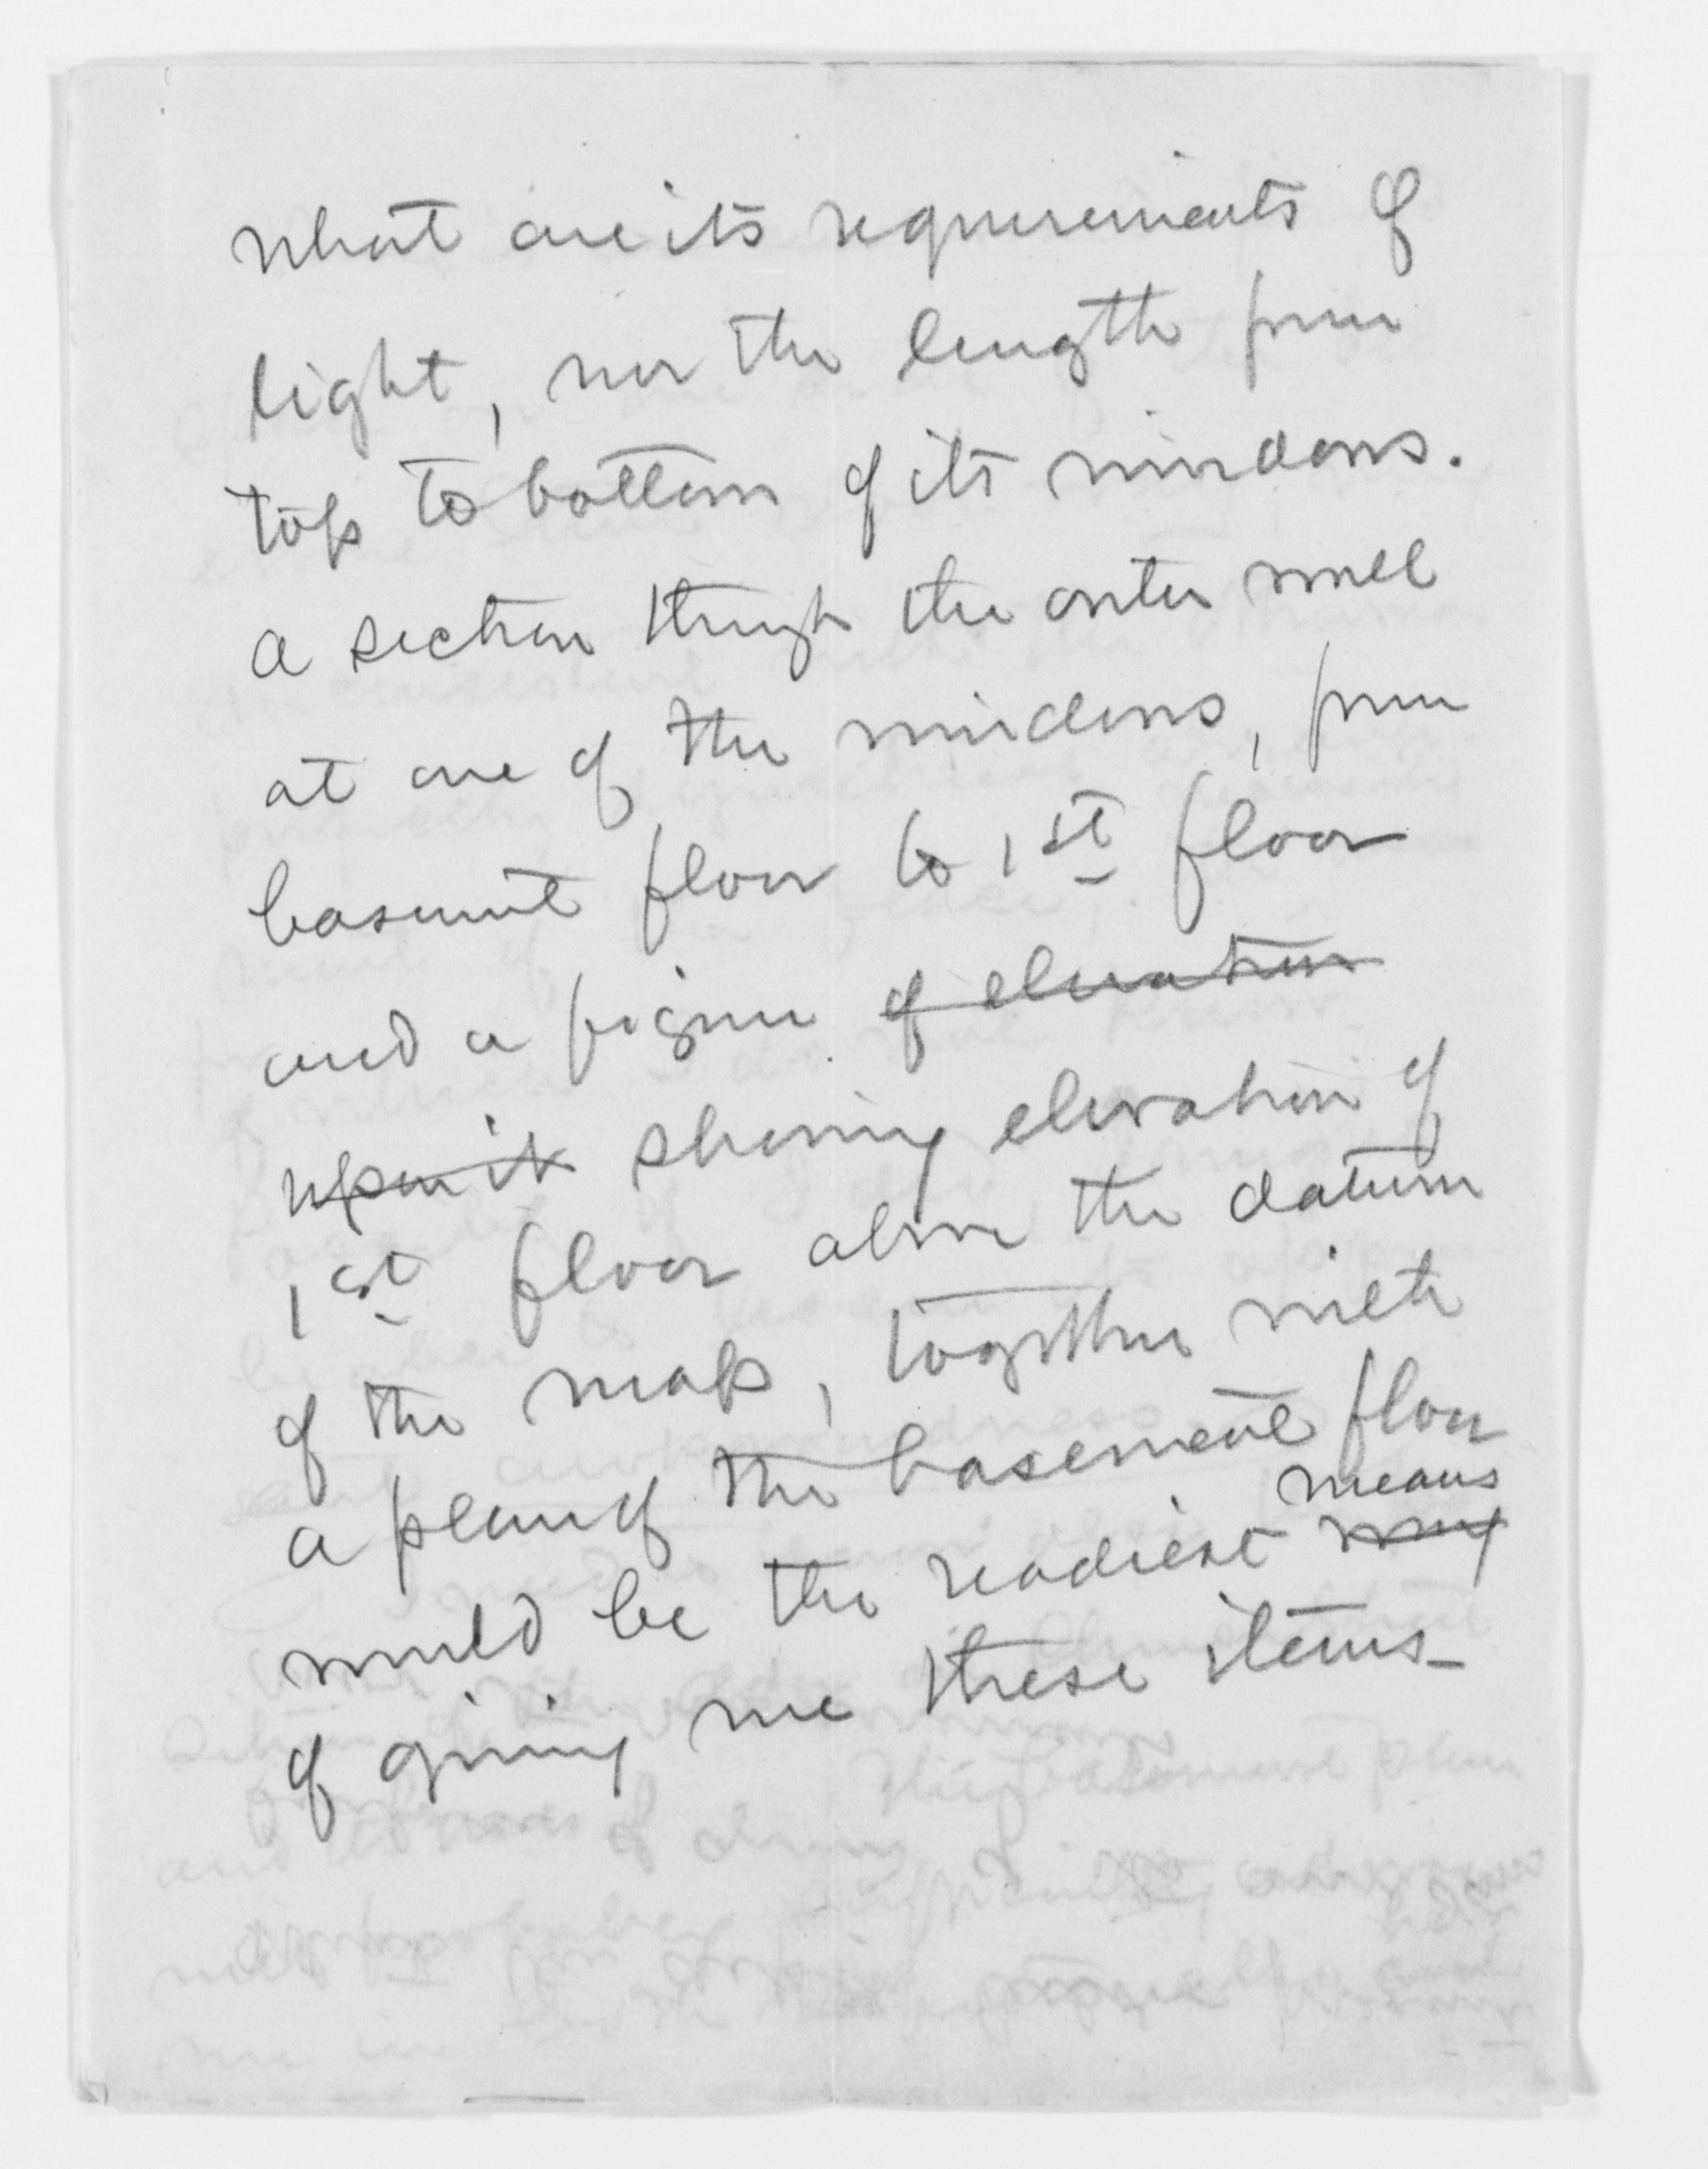 what are its requirements of
light, nor the length from
top to bottom of its windows.
A section through the outer wall
at one of the windows, from
basement floor to 1st floor
and a figure of elevation
upon it showing elevation of
1st floor above the datum
of the map, together with
a plan of the basement floor
means
would be the readiest way
of giving me these items_